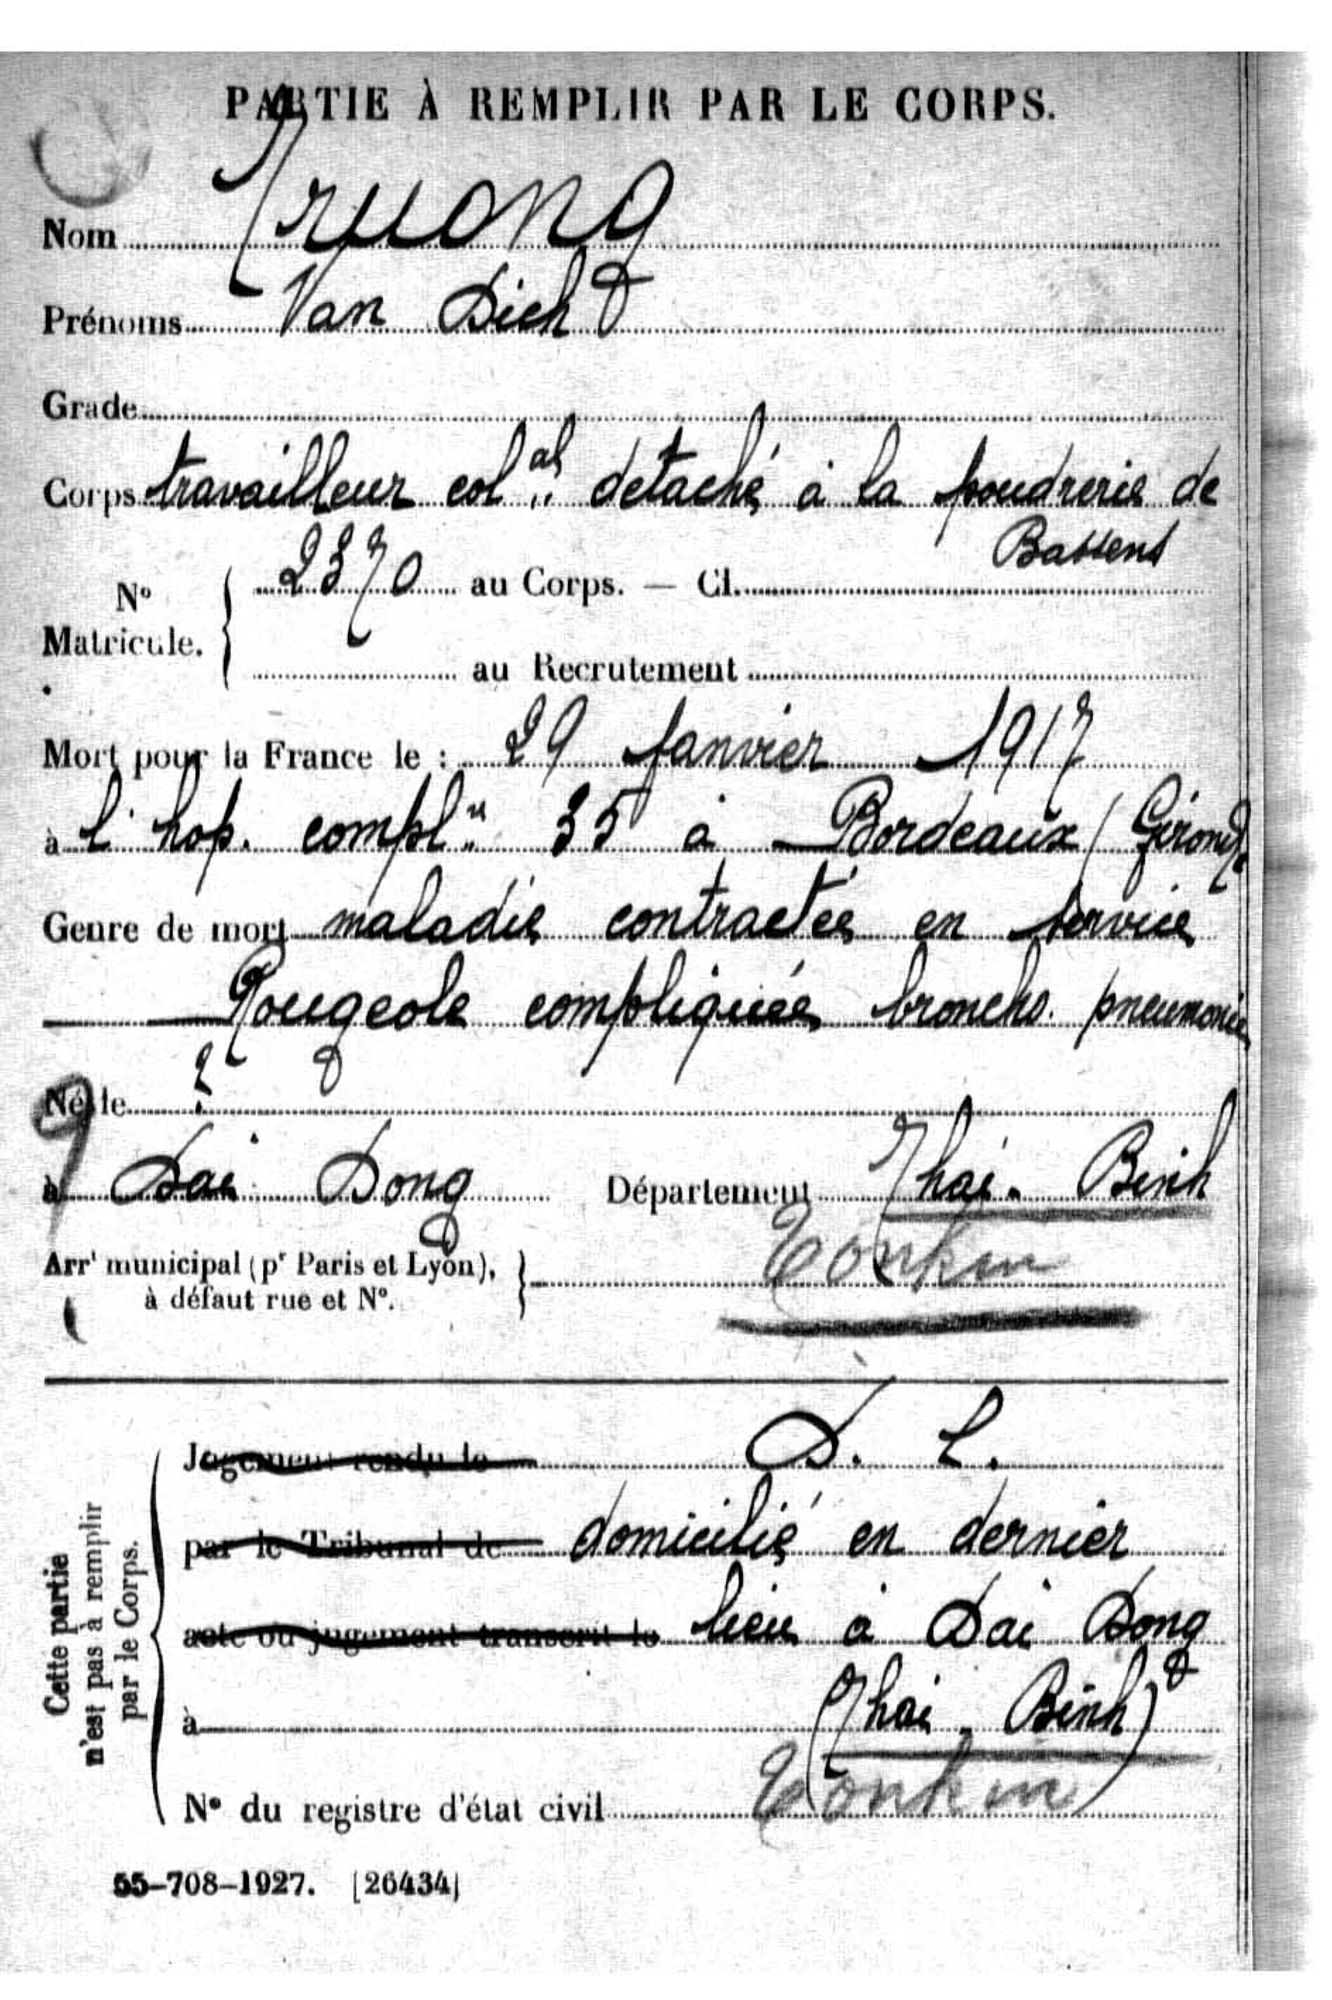 PARTIE À REMPLIR PAR LE CORPS.
Nom Truong
Prénoms Van Dich
Grade
Corps travailleur col.al detaché à la poudrerie de
Bassens
N° Matricule. { 2370 au Corps. — Cl.
au Recrutement
Mort pour la France le : 29 Janvier 1917
à l'hop. compl.re 35 à Bordeaux (Gironde
Genre de mort maladie contractée en service
Rougeole compliquée broncho. pneumonie
Né le ?
à Dai Dong Département Thai-Binh
Tonkin
Arrt municipal (pr Paris et Lyon),
à défaut rue et N°.
Cette partie
n'est pas à remplir
par le Corps.
Jugement rendu le D. L.
par le Tribunal de domicilié en dernier
acte ou jugement transcrit le lieu à Dai Dong
à (Thai-Binh)
N° du registre d'état civil Tonkin
55-708-1927. [26434]